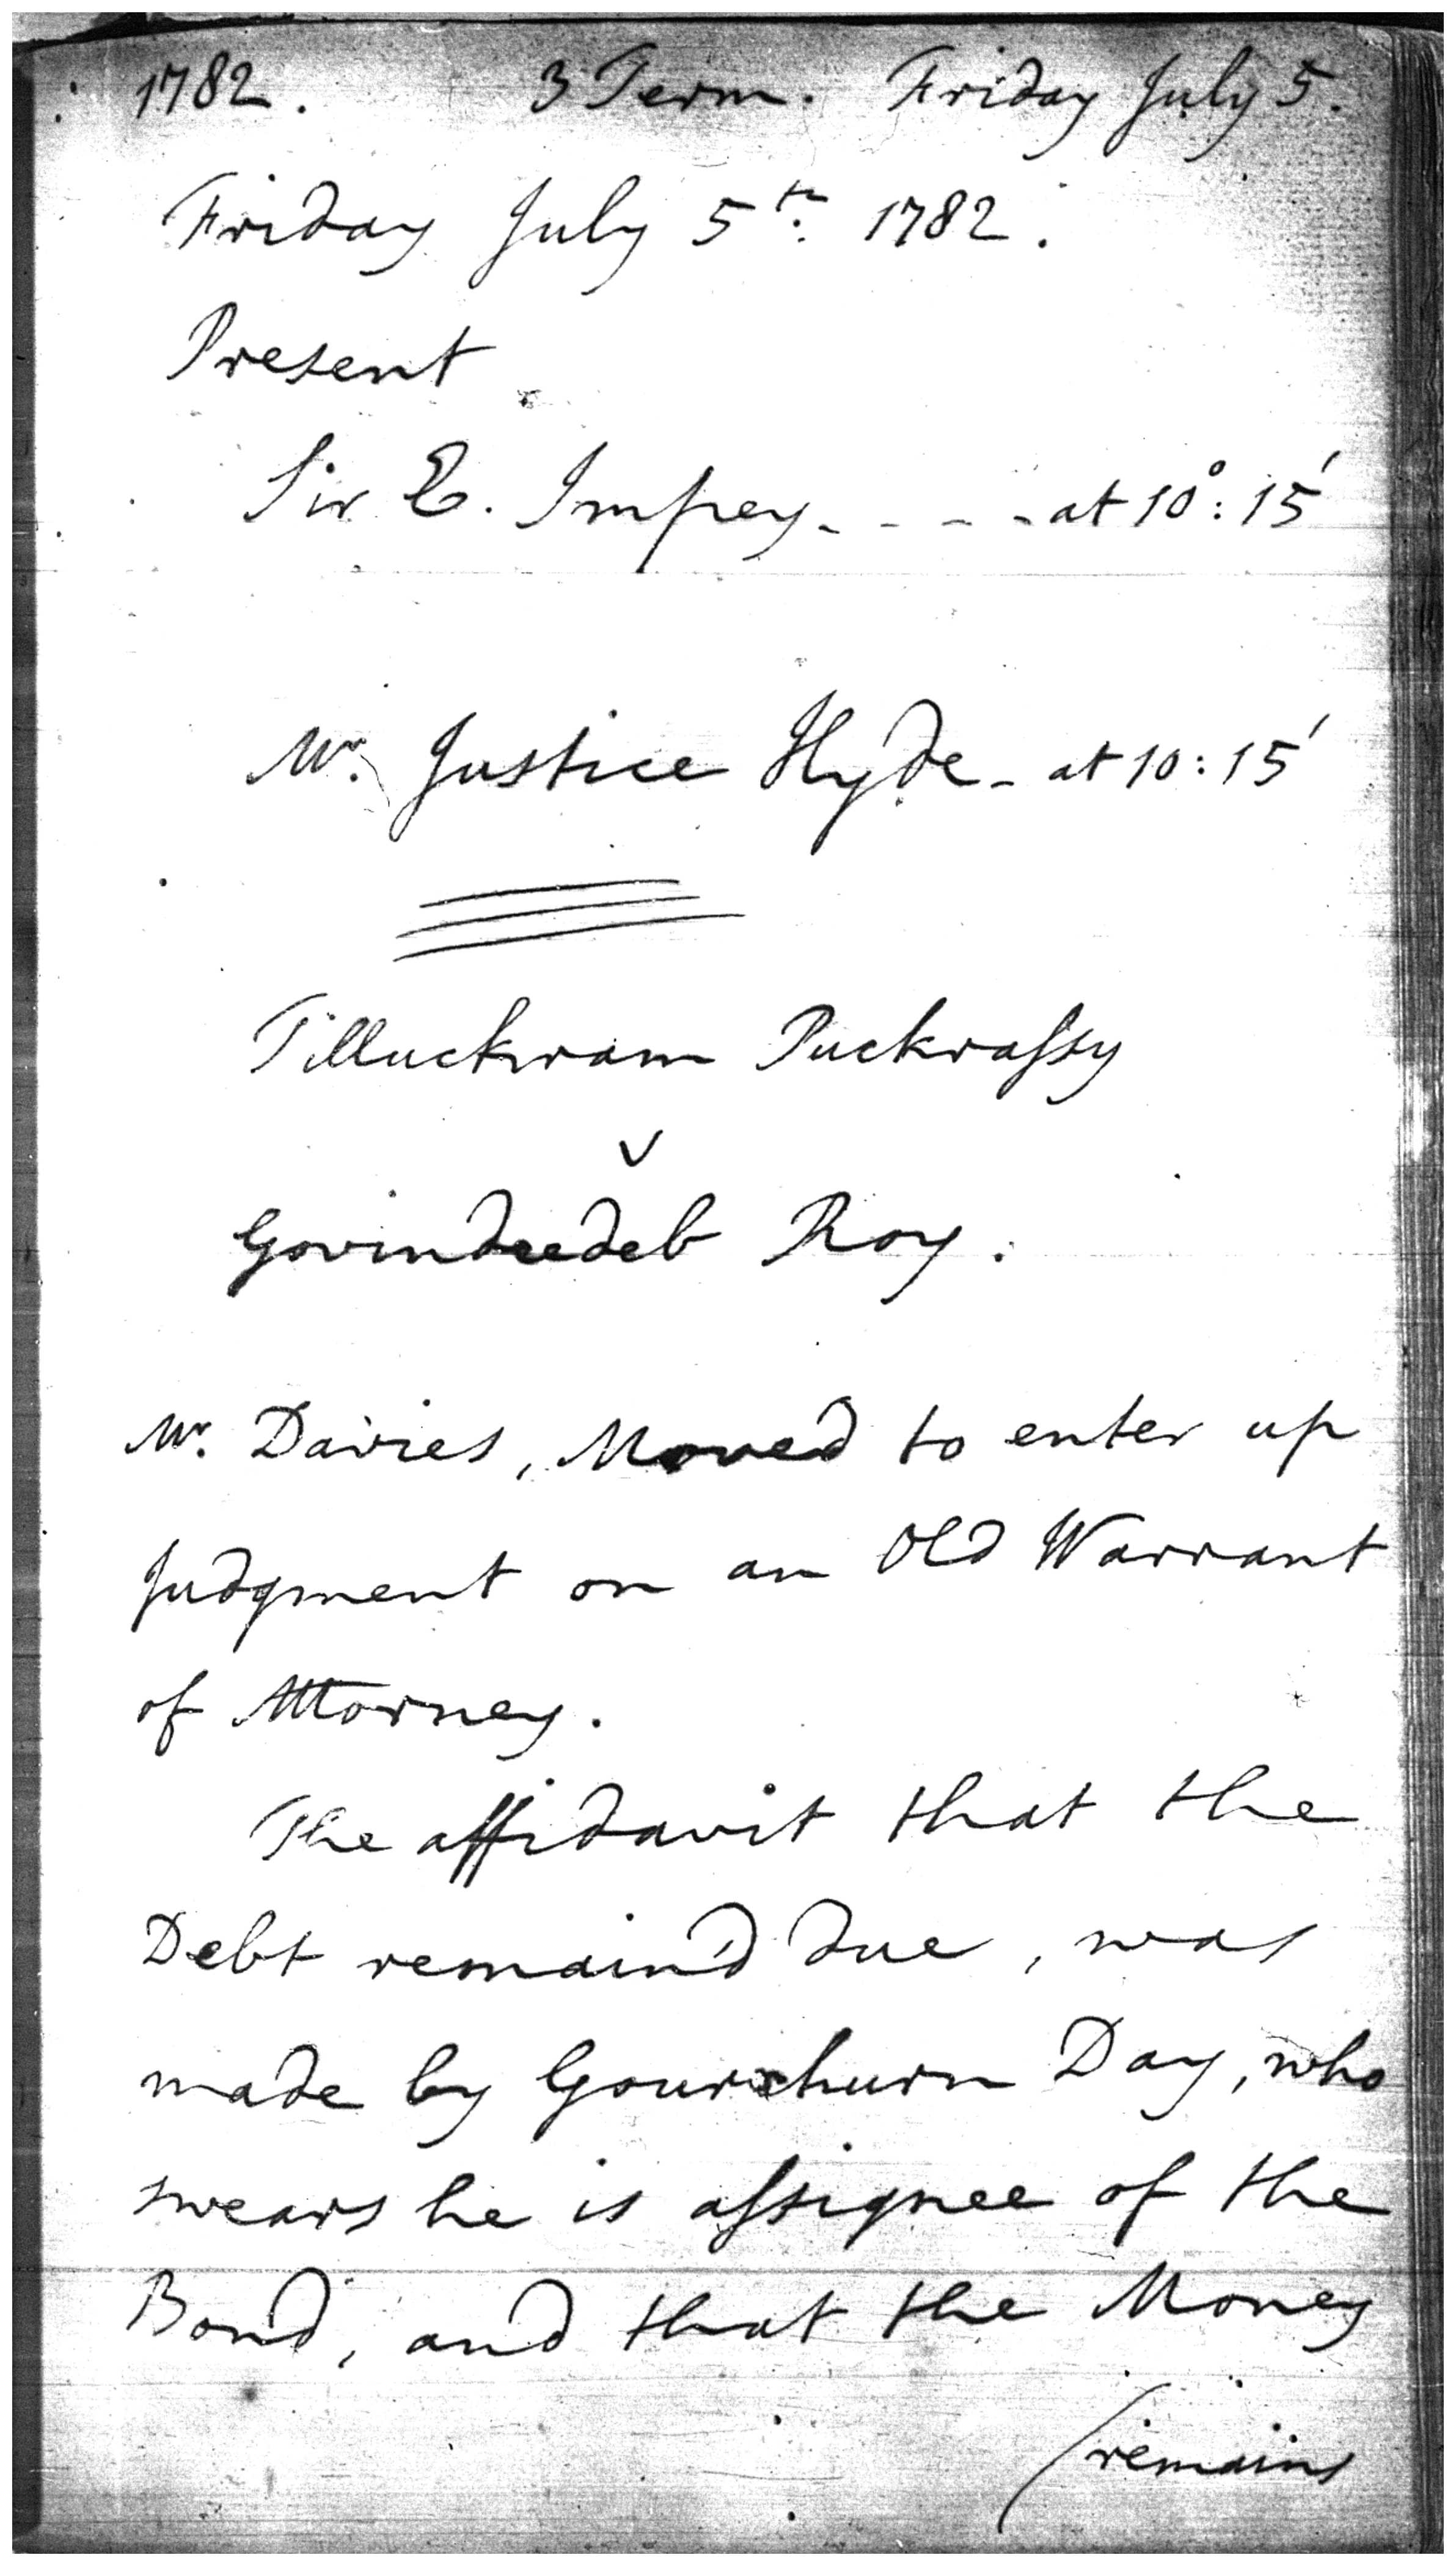 1782. 3 Term. Friday July 5.
Friday July 5th. 1782.
Present
Sir E. Impey - - - - at 10°: 15'
Mr. Justice Hyde - at 10: 15'
Tilluckram Puckraſsy
v
Govindeedeb Roy.
Mr. Davies, Moved to enter up
Judgment on an Old Warrant
of Attorney.
The affidavit that the
Debt remain'd due, was
made by Gourchurn Day, who
swears he is aſsignee of the
Bond, and that the Money
/remains